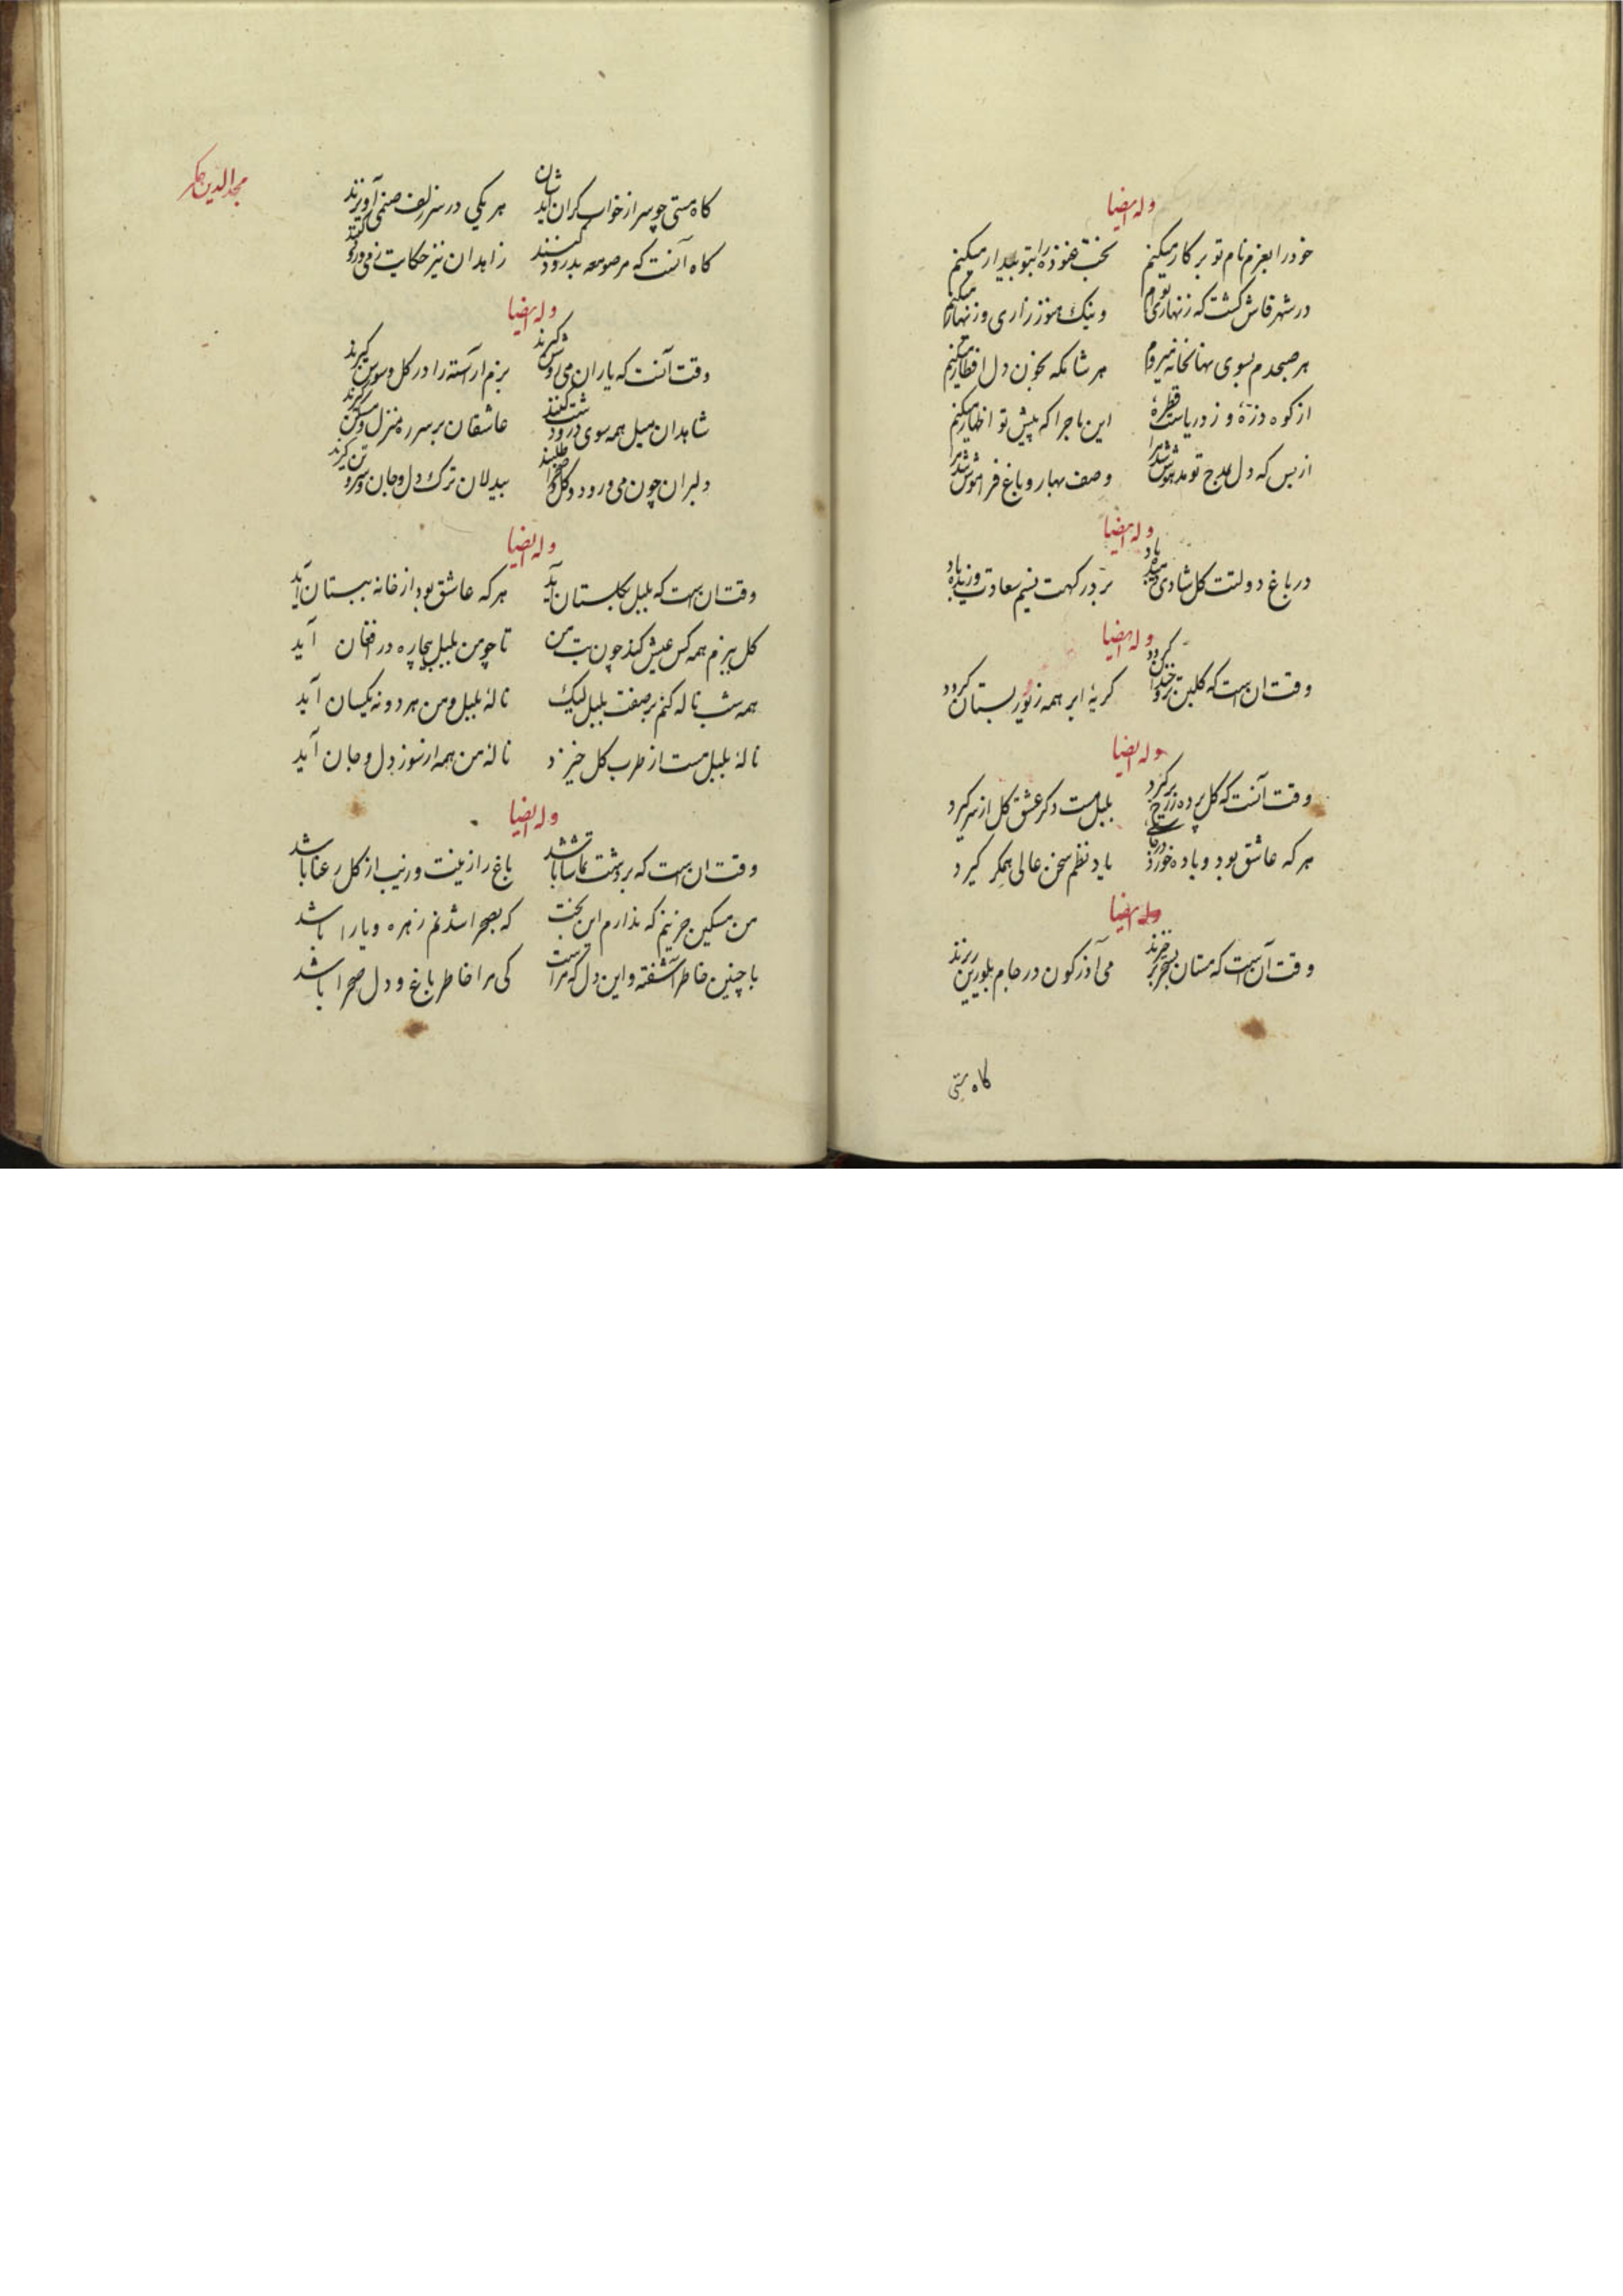 وله ایضا
خود را بعزم نام تو بر کار میکنم بخت غنوده را بتو بیدار میکنم
در شهر فاش گشت که زنهاری توم وینک هنوز زاری و زنهار میکنم
هر صبحدم بسوی نهانخانه میروم هر شامگه بخون دل افطار میکنم
از کوه ذرّهٔ و ز دریاست قطرهٔ این ماجرا که پیش تو اظهار میکنم
از بس که دل بمدح تو مدهوش شد مرا وصف بهار و باغ فراموش شد مرا
وله ایضا
در باغ دولتت کل شادی باد بر در کهت نسیم سعادت وزیده باد
وله ایضا
وقت ان است که کلبن تر و خندان کردد کریهٔ ابر همه زیور بستان کردد
وله ایضا
وقت آنست که کل پرده ز رخ برکیرد بلبل مست دکر عشق کل از سر کیرد
هر که عاشق بود و باده خورد یاد نظم سخن عالی همکر کیرد
وله ایضا
وقت آن است که مستان بسحر برخیزند می آذرکون در جام بلورین ریزند
کاه مستی
مجد الدین همکر
کاه مستی چو سر از خواب کران آیدشان هر یکی در سر زلف صنمی آویزند
کاه آنست که مر صومعه بدرود کنند زاهدان نیز حکایت ز می و رود کنند
وله ایضا
وقت آنست که یاران می روشن کیرند بزم اراسته را در کل و سوسن کیرند
شاهدان میل همه سوی در و دشت کنند عاشقان بر سر ره منزل و مسکن کیرند
دلبران چون می و رود و کل و صحرا طلبند بیدلان ترک دل و جان و سر و تن کیرند
وله ایضا
وقت ان است که بلبل بکلستان آید هر که عاشق بود از خانه ببستان آید
کل ببزم همه کس عیش کند چون بت من تا چو من بلبل بیچاره در افغان آید
همه شب ناله کنم بر صفت بلبل لیک نالهٔ بلبل و من هر دو نه یکسان آید
نالهٔ بلبل مست از طرب کل خیزد نالهٔ من همه از سوز دل و جان آید
وله ایضا
وقت ان است که بر دشت تماشا باشد باغ را زینت و زیب از کل رعنا باشد
من مسکین حزینم که ندارم این بخت که بصحرا شدنم زهره و یارا باشد
با چنین خاطر آشفته و این دل که مراست کی مرا خاطر باغ و دل صحرا باشد